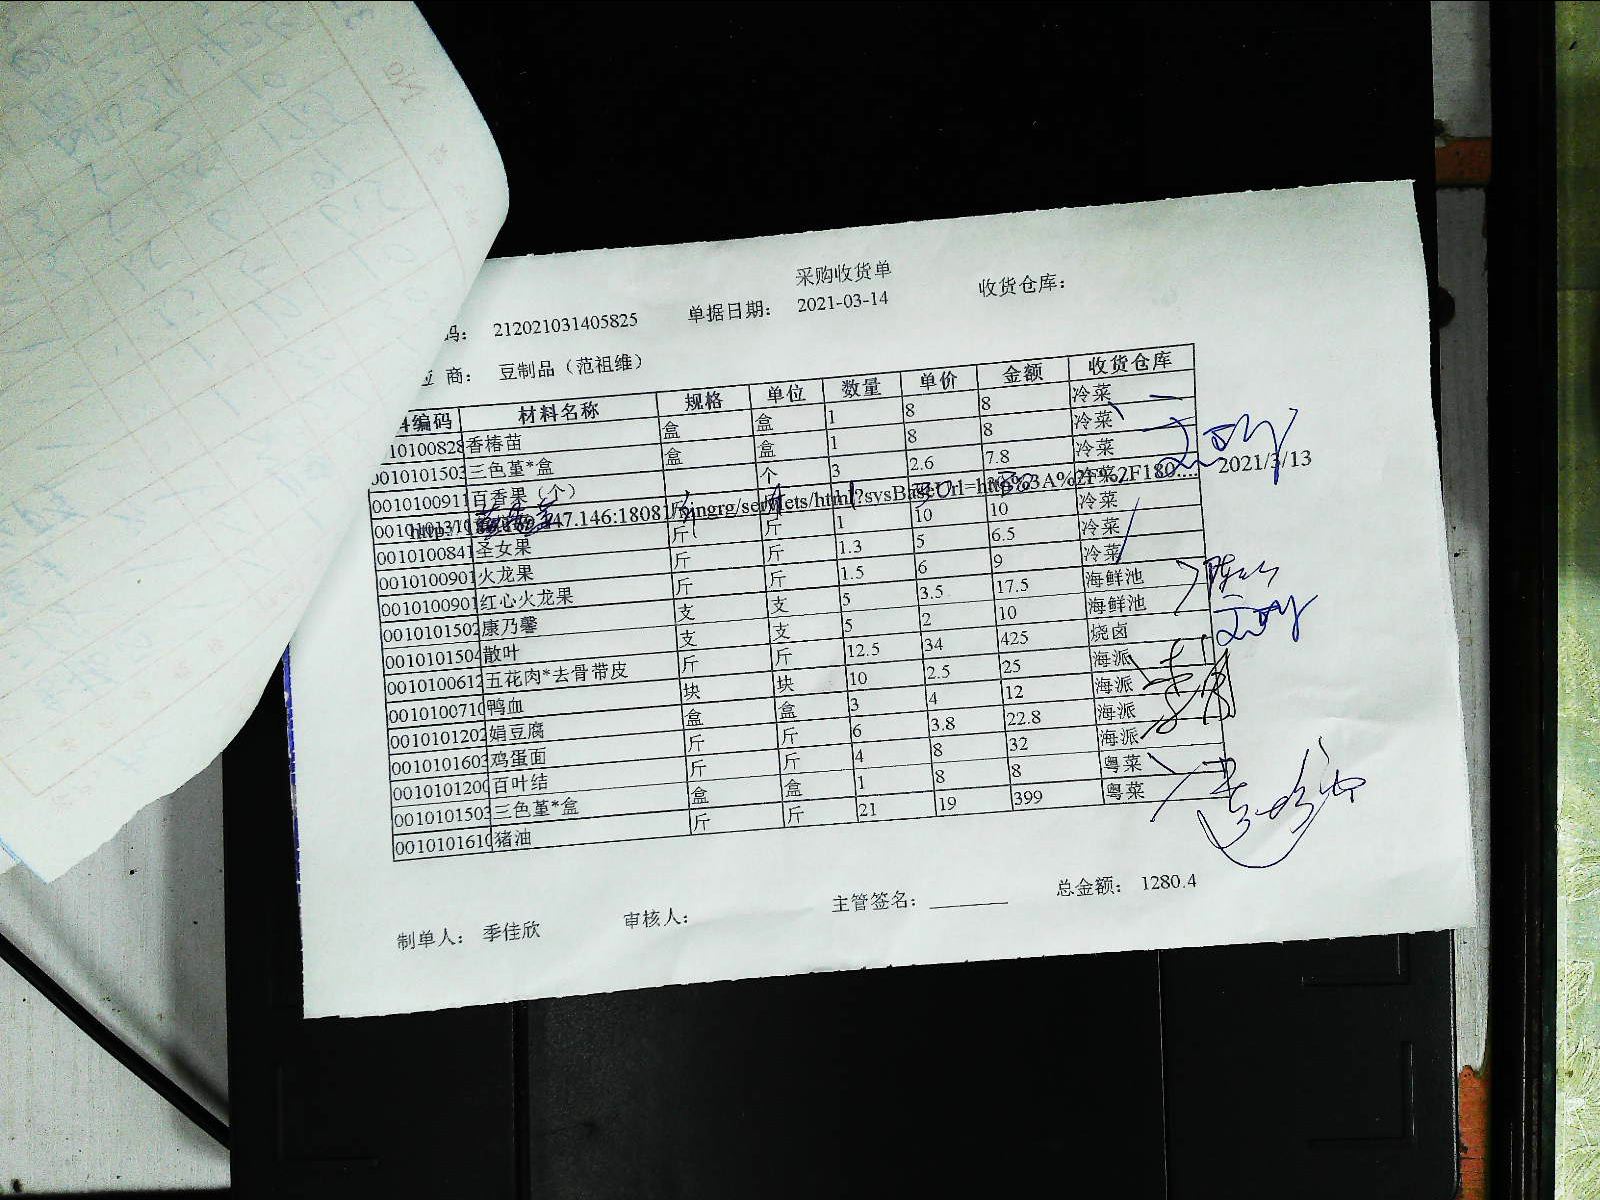 采购收货单
码： 212021031405825 单据日期： 2021-03-14 收货仓库：
商： 豆制品（范祖维）
编码 材料名称 规格 单位 数量 单价 金额 收货仓库
10100828 香椿苗 盒 盒 1 8 8 冷菜
0010101503 三色堇*盒 盒 盒 1 8 8 冷菜
0010100911 百香果（个） 个 3 2.6 7.8 冷菜
2021/3/13
0010100841 圣女果 斤 斤 1 10 10 冷菜
0010100901 火龙果 斤 斤 1.3 5 6.5 冷菜
0010100901 红心火龙果 斤 斤 1.5 6 9 冷菜
0010101502 康乃馨 支 支 5 3.5 17.5 海鲜池
0010101504 散叶 支 支 5 2 10 海鲜池
0010100612 五花肉*去骨带皮 斤 斤 12.5 34 425 烧卤
0010100710 鸭血 块 块 10 2.5 25 海派
0010101202 娟豆腐 盒 盒 3 4 12 海派
0010101603 鸡蛋面 斤 斤 6 3.8 22.8 海派
0010101200 百叶结 斤 斤 4 8 32 海派
0010101503 三色堇*盒 盒 盒 1 8 8 粤菜
0010101610 猪油 斤 斤 21 19 399 粤菜
制单人： 季佳欣 审核人： 主管签名： 总金额： 1280.4